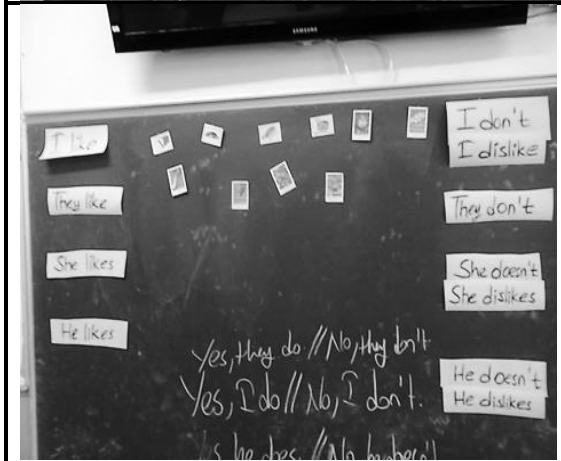 SAMSUNG
I like
They like
She likes
He likes
I don't
I dislike
They don't
She doesn't
She dislikes
He doesn't
He dislikes
Yes, they do // No, they don't
Yes, I do // No, I don't.
Yes he does. // No he doesn't